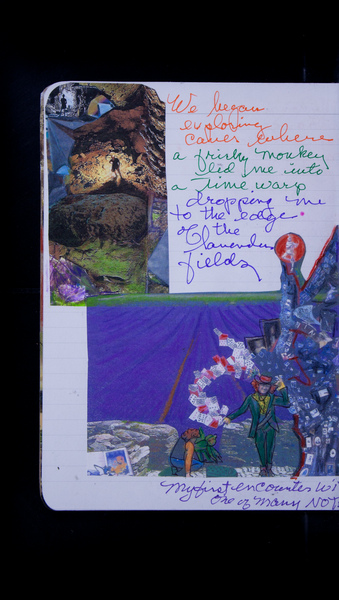 We began
exploring
caves where
a frisky monkey
led me into
a time warp
dropping me
to the edge
of the
lavendar
fields
My first encounter wi
one of many NOT